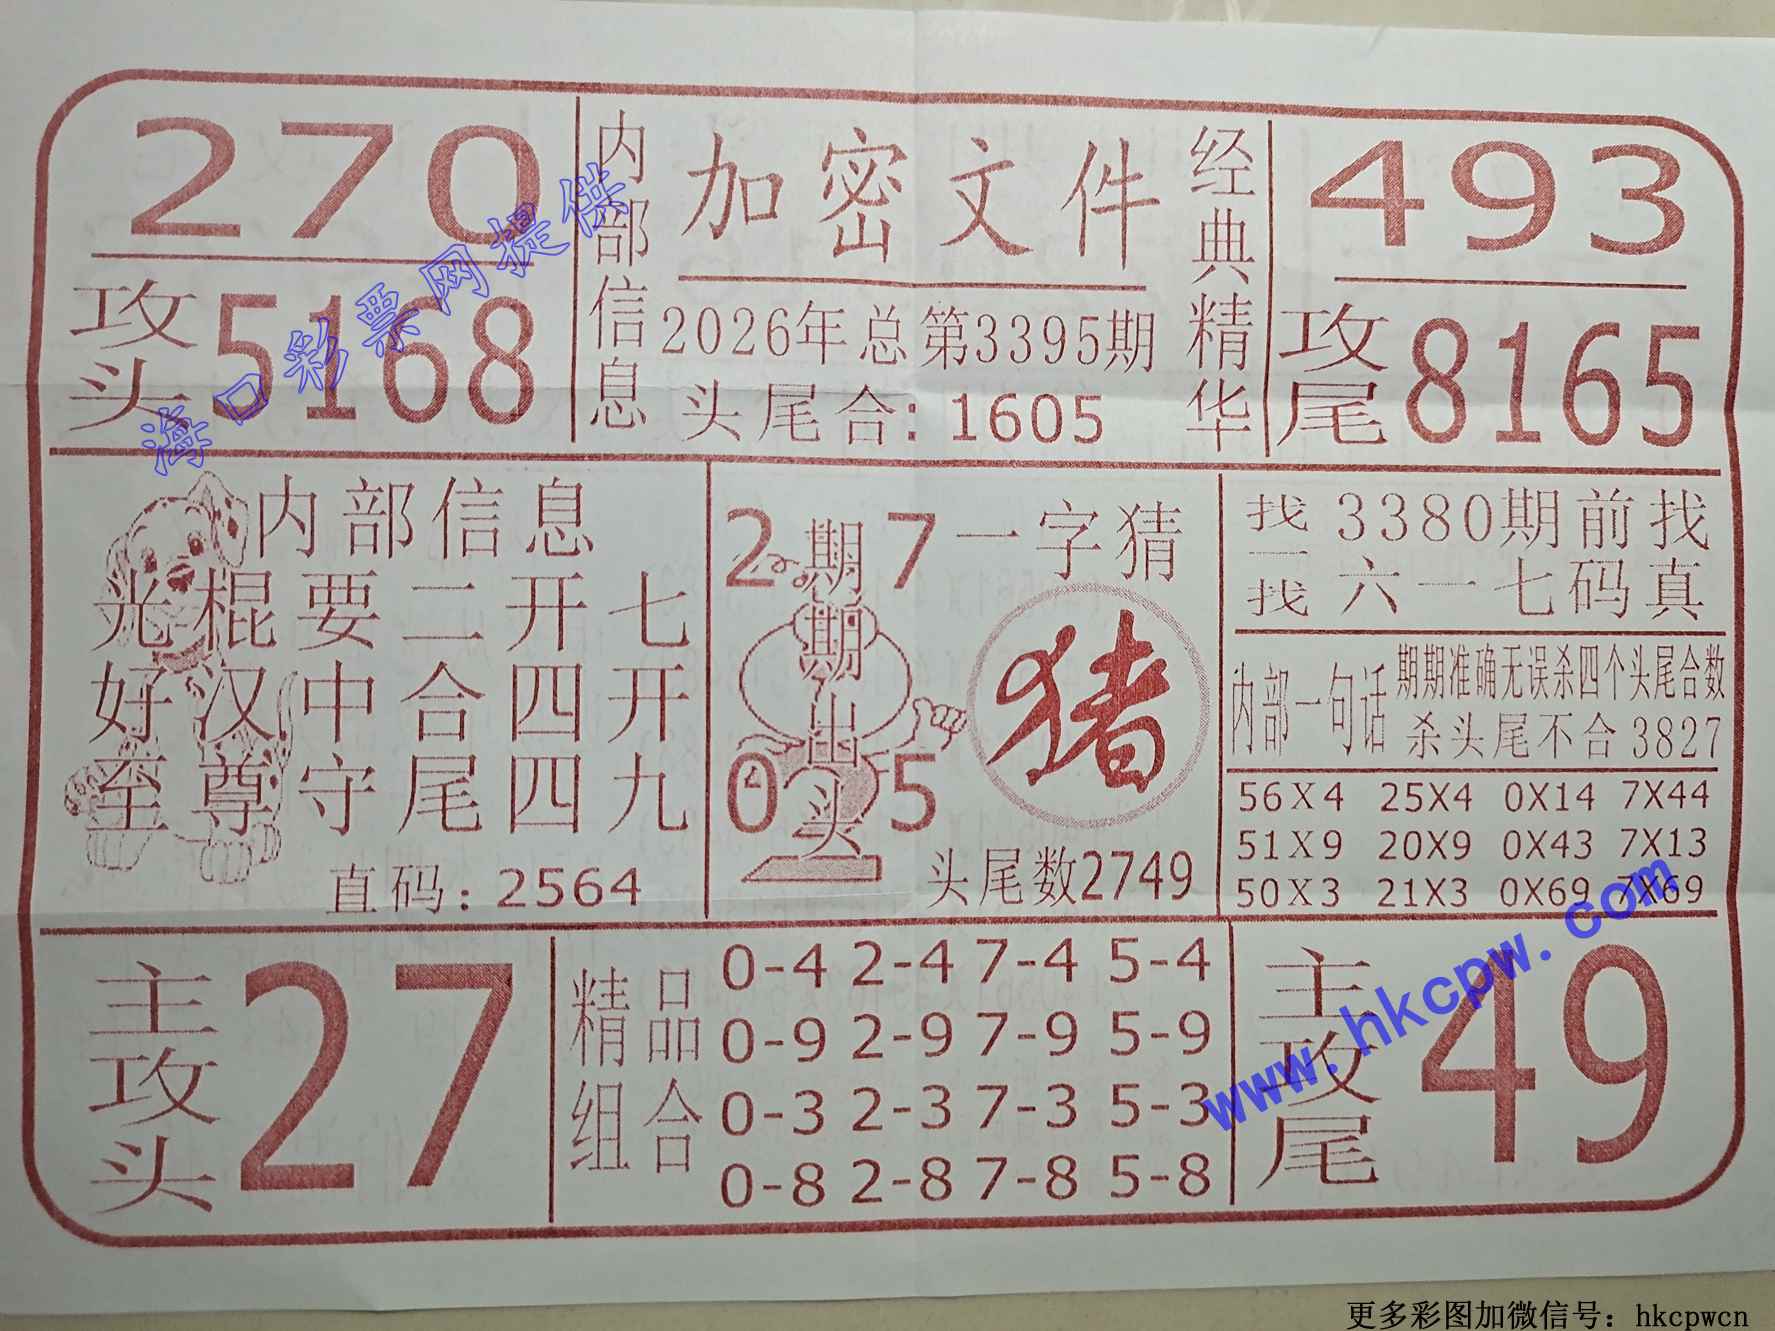 270
攻头5168
内部信息
加密文件
2026年总第3395期
头尾合:1605
经典精华
493
攻尾8165
海口彩票网提供
内部信息
光棍要二开七
好汉中合四开
至尊守尾四九
直码:2564
2 7
0 5
期期出头
一字猜
猪
头尾数2749
找一找
3380期前找
六一七码真
内部一句话
期期准确无误杀四个头尾合数
杀头尾不合3827
56X4 25X4 0X14 7X44
51X9 20X9 0X43 7X13
50X3 21X3 0X69 7X69
主攻头
27
精品组合
0-4 2-4 7-4 5-4
0-9 2-9 7-9 5-9
0-3 2-3 7-3 5-3
0-8 2-8 7-8 5-8
主攻尾
49
www.hkcpw.com
更多彩图加微信号：hkcpwcn